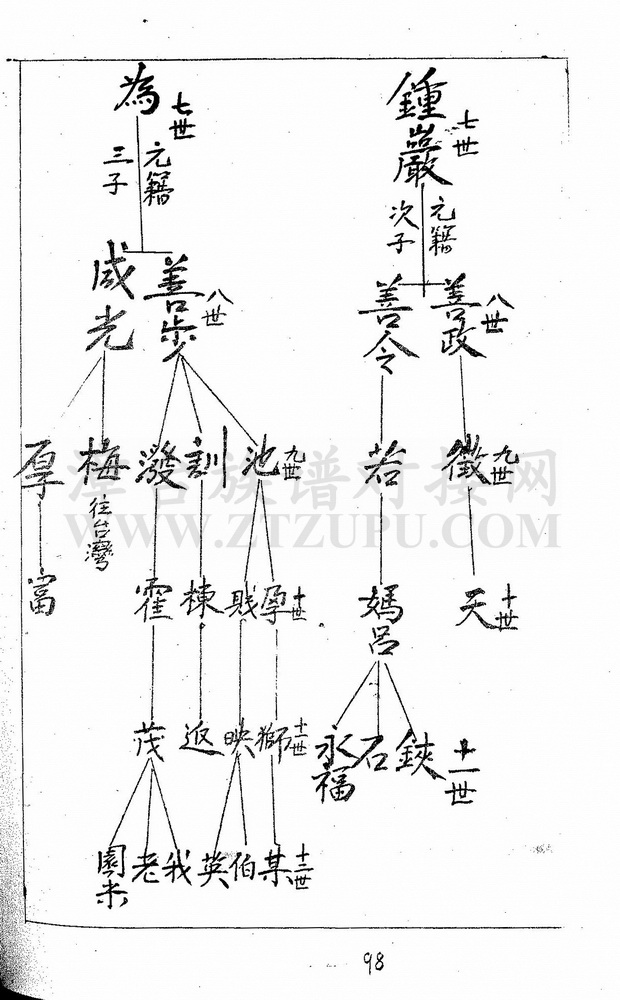 鍾巖
七世
元籍
次子
善政
善令
八世
徵
若
九世
天
媽呂
十世
鋏
石
永福
十一世
為
七世
元籍
三子
善步
咸光
八世
池
訓
潑
梅
往台灣
厚
九世
孕
戝
棟
霍
富
十世
獅
映
返
茂
十一世
某
伯
英
我
老
園米
十二世
WWW.ZTZUPU.COM
98